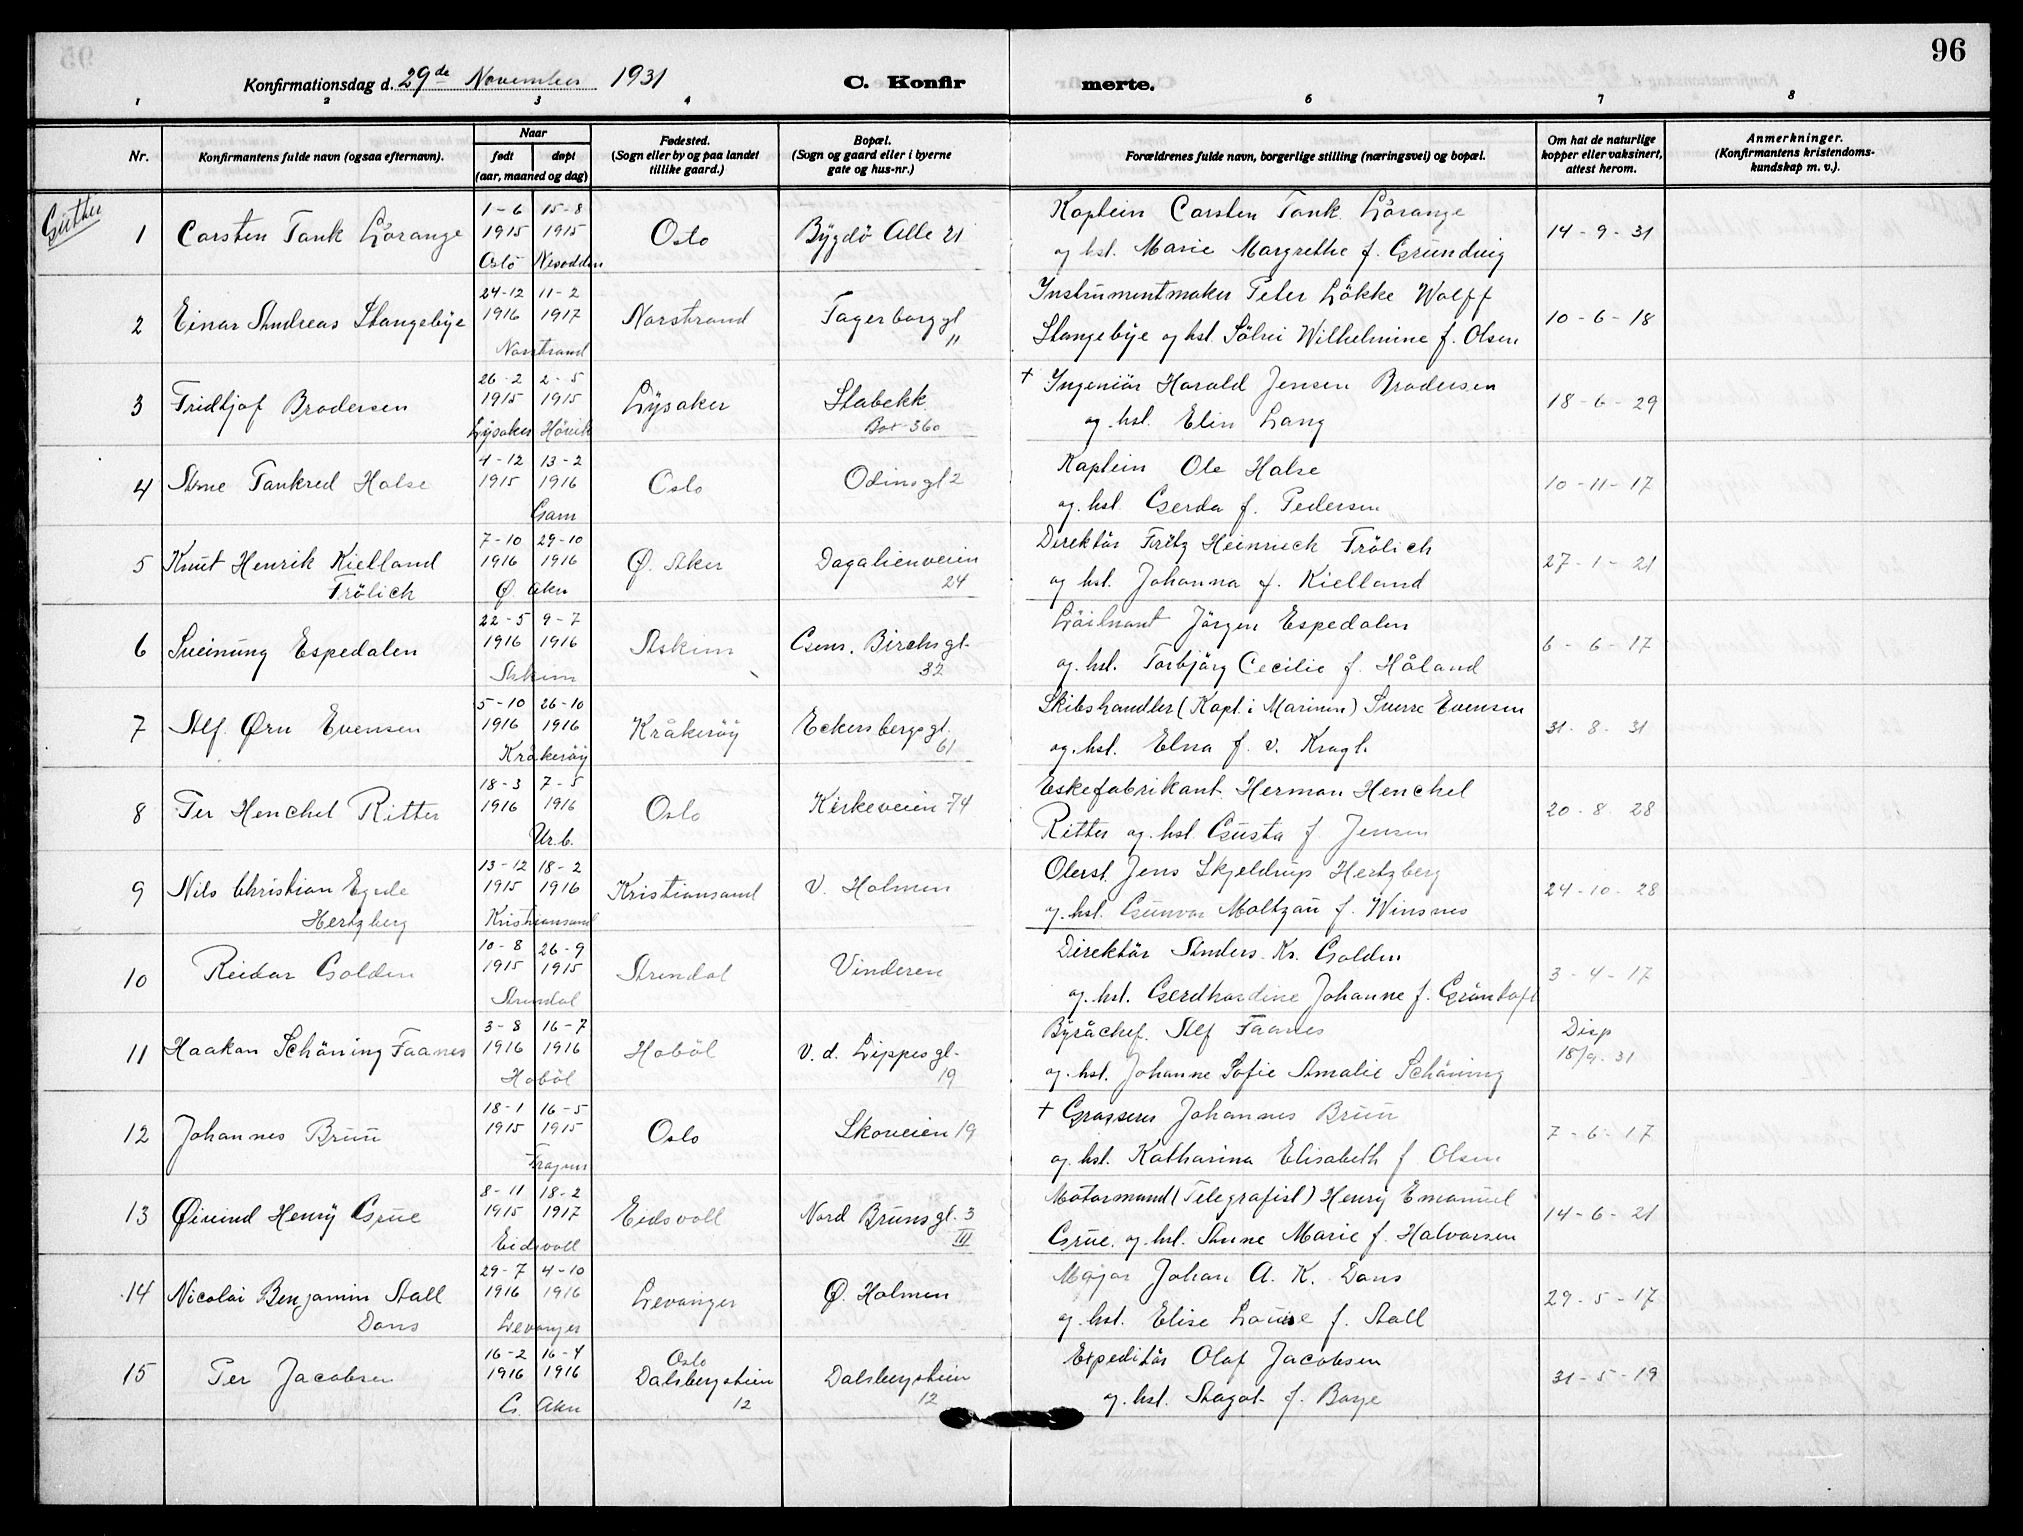 96
Konfirmationsdag d. 29de November 1931 C. Konfirmerte.
1 2 3 4 6 7 8
Nr. Konfirmantens fulde navn (ogsaa efternavn). Naar født døpt (aar, maaned og dag) Fødested. (Sogn eller by og paa landet tillike gaard.) Bopæl. (Sogn og gaard eller i byerne gate og hus-nr.) Forældrenes fulde navn, borgerlige stilling (næringsvei) og bopæl. Om hat de naturlige kopper eller vaksinert, attest herom. Anmerkninger. (Konfirmantens kristendomskundskap m. v.).
1 Carsten Tank Lörange 1-6 1915 15-8 1915 Oslo Nesodden Oslo Bygdö Alle 21 Kaptein Carsten Tank Lörange
og hst. Marie Margrethe f. Grundvig 14-9-31
2 Einar Andreas Stangebye 24-12 1916 11-2 1917 Norstrand Norstrand Fagerborggt 11 Instrumentmaker Peter Lökke Wolff
Stangebye og hst. Sölvi Wilhelmine f. Olsen 10-6-18
3 Fridtjof Brodersen 26-2 1915 2-5 1915 Lysaker Hövik Lysaker Stabekk Box 360 + Ingeniör Harald Jensen Brodersen
og hst. Elin Lang 18-6-29
4 Arne Tankred Halse 4-12 1915 13-2 1916 Garn Oslo Odinsgt 2 Kaptein Ole Halse
og hst. Gerda f. Pedersen 10-11-17
5 Knut Henrik Kielland Frölich 7-10 1916 29-10 1916 Ø. Aker Ø. Aker Dagalienveien 24 Direktör Fritz Heinrich Frölich
og hst. Johanna f. Kielland 27-1-21
6 Sveinung Espedalen 22-5 1916 9-7 1916 Askim Askim Gens. Birchsgt. 32 Löitnant Jörgen Espedalen
og hst. Torbjörg Cecilie f. Håland 6-6-17
7 Alf Ørn Evensen 5-10 1916 26-10 1916 Kråkeröy Kråkeröy Eckersbergsgt. 61 Skibshandler (Kapt. i Marinen) Sverre Evensen
og hst. Elna f. v. Kragh 31-8-31
8 Per Henchel Ritter 18-3 1916 7-5 1916 Ur.b. Oslo Kirkeveien 74 Eskefabrikant Herman Henchel
Ritter og hst. Gusta f. Jensen 20-8-28
9 Nils Christian Egede Hertzberg 13-12 1915 18-2 1916 Kristiansand Kristiansand V. Holmen Oberst. Jens Skjeldrup Hertzberg
og hst. Gunvor Moltzau f. Winsnes 24-10-28
10 Reidar Golden 10-8 1915 26-9 1915 Arendal Arendal Vinderen Direktör Anders Kr. Golden
og hst. Gerdhardine Johanne f. Gröntoft 3-4-17
11 Haakon Schöning Faanes 3-8 1916 16-7 1916 Hoböl Hoböl v. d. Lippesgt. 19 Byråchef. Alf Faanes
og hst. Johanne Sofie Amalie Schöning Disp 18/9-31
12 Johannes Bruu 18-1 1915 16-5 1915 Oslo Skoveien 19 + Grosserer Johannes Bruu
og hst. Katharina Elisabeth f. Olsen 7-6-17
13 Øivind Henry Grue 8-11 1915 18-2 1917 Eidsvoll Eidsvoll Nord Brunsgt. 3 III Motormand (Telegrafist) Henry Emanuel
Grue og hst. Anne Marie f. Halvorsen 14-6-21
14 Nicolai Benjamin Aall Dons 29-7 1916 4-10 1916 Levanger Levanger Ø. Holmen Major Johan A. K. Dons
og hst. Elise Louise f. Aall 29-5-17
15 Per Jacobsen 16-2 1916 16-4 1916 G. Aker Oslo Dalsbergstien 12 Dalsbergstien 12 Expeditör Olaf Jacobsen
og hst. Aagot f. Boye 31-5-19